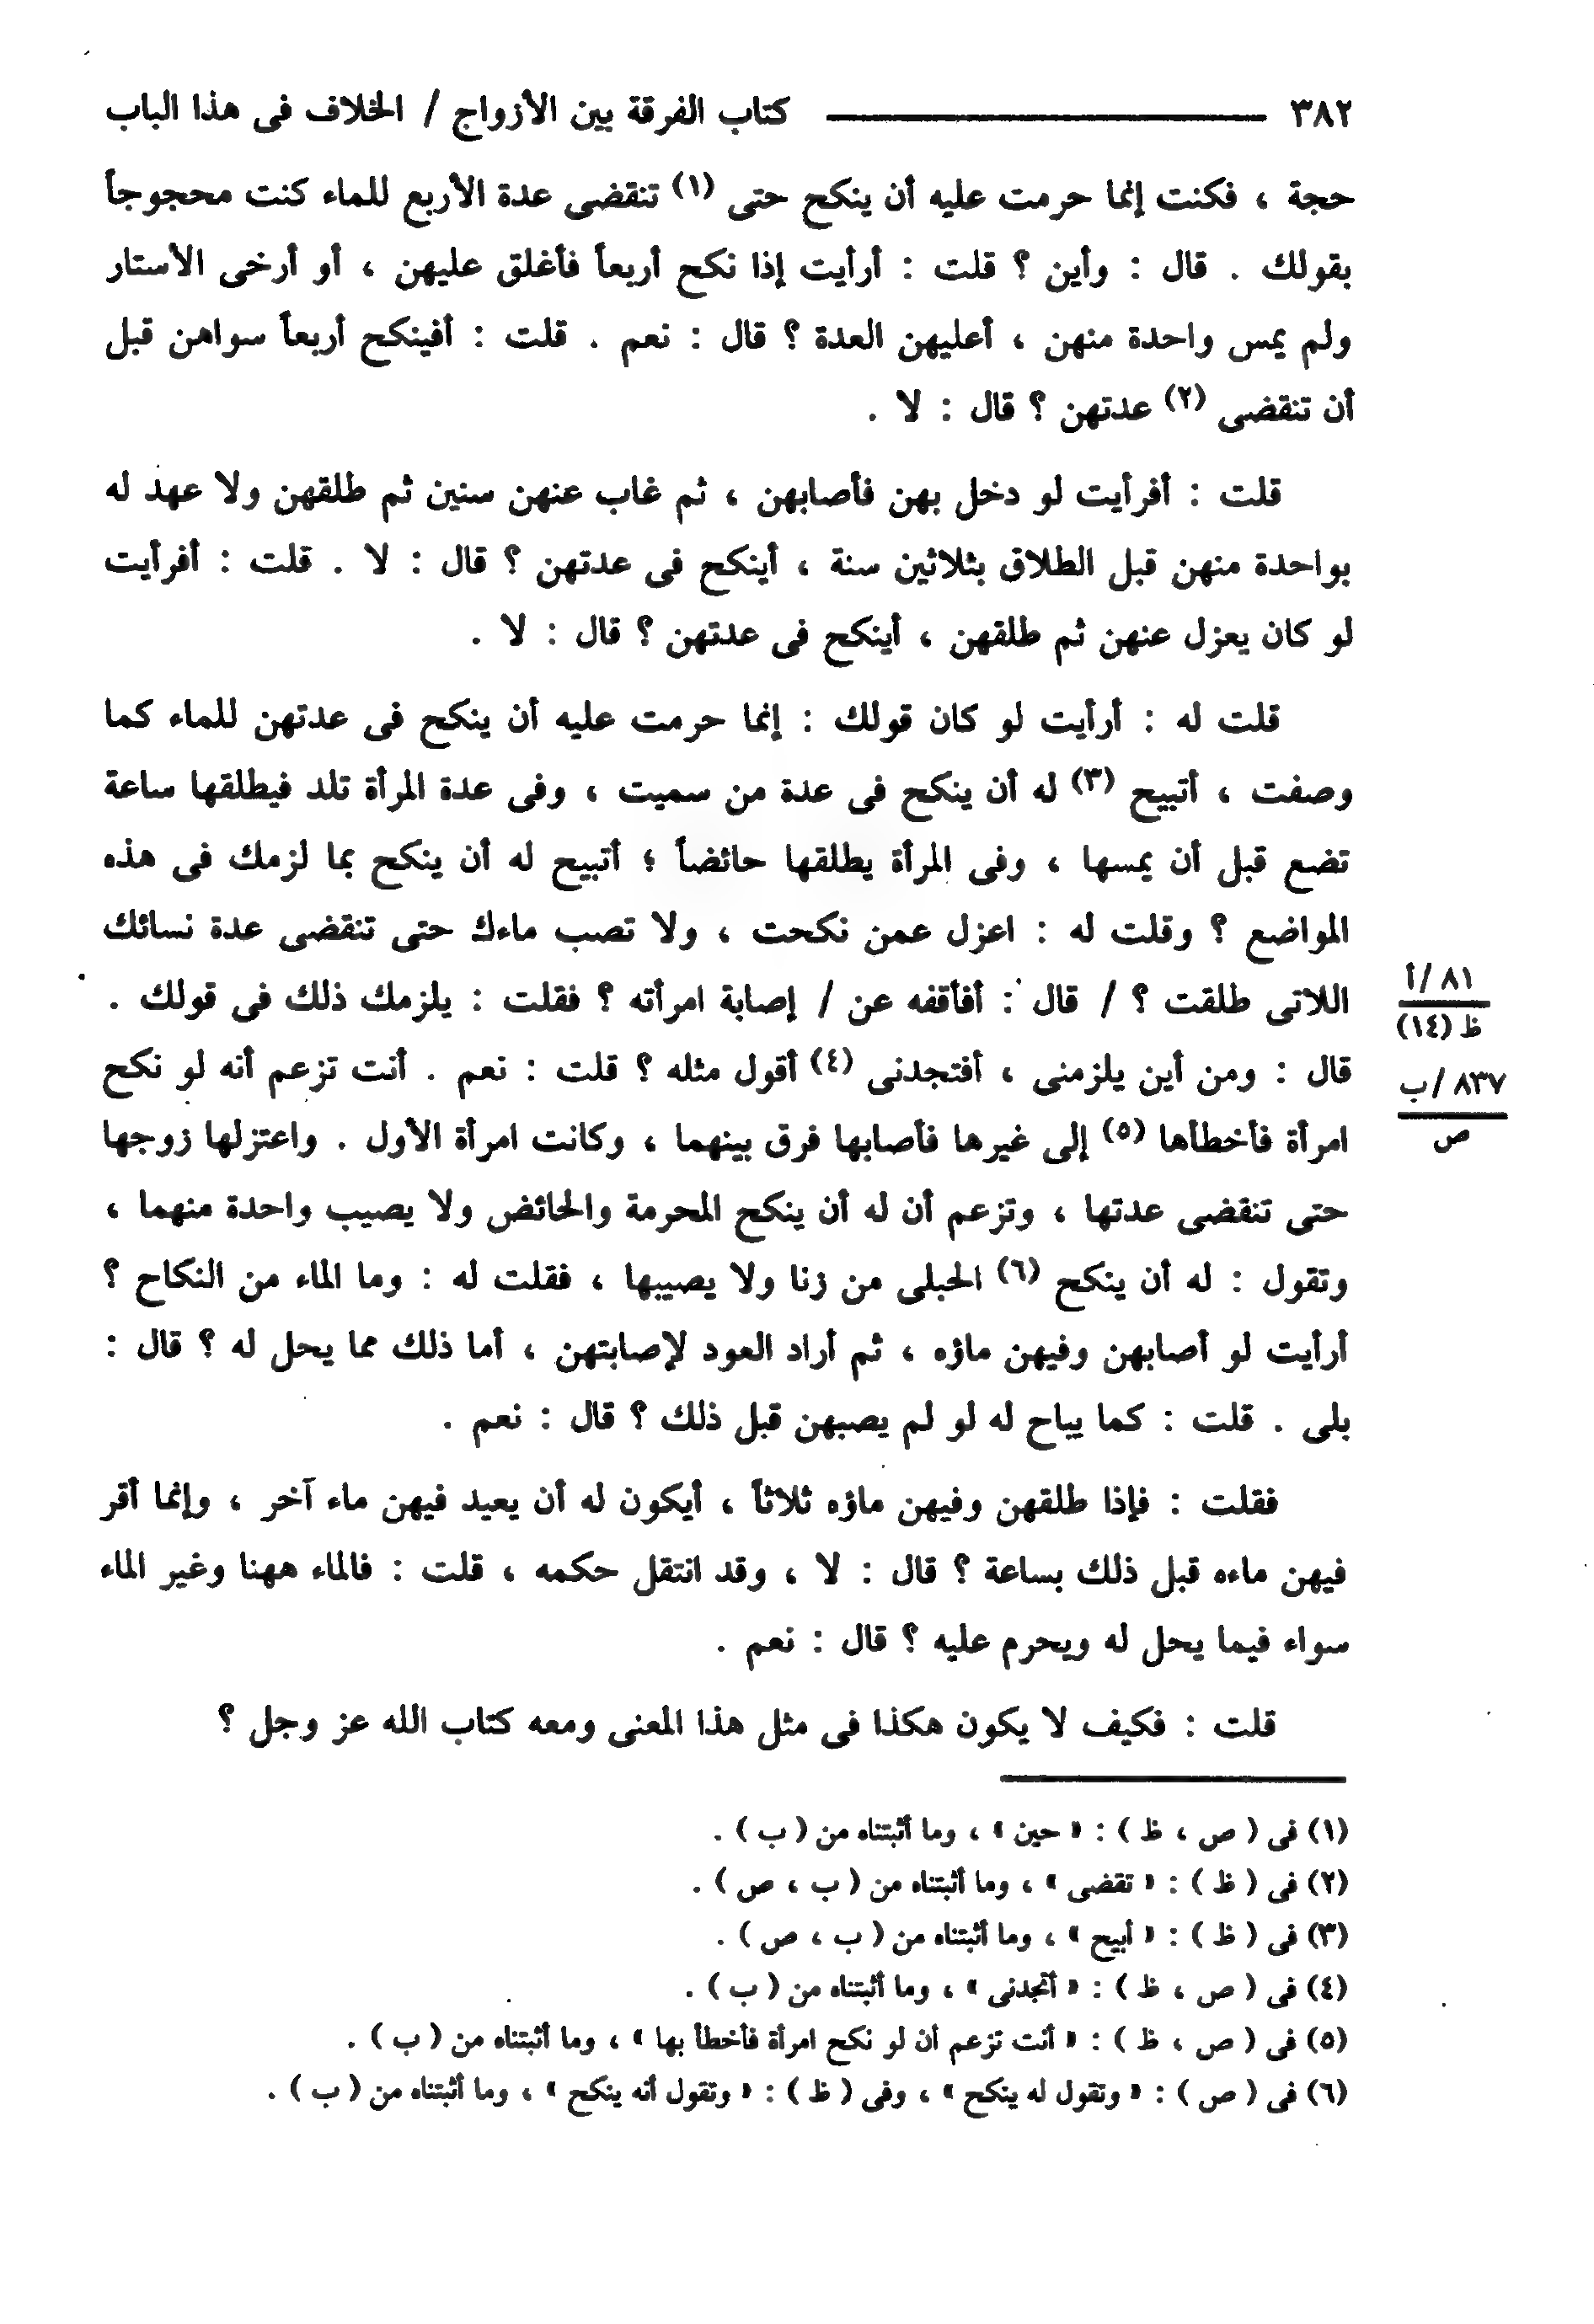 ٣٨٢ كتاب الفرقة بين الأزواج / الخلاف فى هذا الباب
حجة ، فكنت إنما حرمت عليه أن ينكح حتى (١) تنقضى عدة الأربع للماء كنت محجوجاً
بقولك . قال : وأين ؟ قلت : أرأيت إذا نكح أربعاً فأغلق عليهن ، أو أرخى الأستار
ولم يمس واحدة منهن ، أعليهن العدة ؟ قال : نعم . قلت : أفينكح أربعاً سواهن قبل
أن تنقضى (٢) عدتهن ؟ قال : لا .
قلت : أفرأيت لو دخل بهن فأصابهن ، ثم غاب عنهن سنين ثم طلقهن ولا عهد له
بواحدة منهن قبل الطلاق بثلاثين سنة ، أينكح فى عدتهن ؟ قال : لا . قلت : أفرأيت
لو كان يعزل عنهن ثم طلقهن ، أينكح فى عدتهن ؟ قال : لا .
قلت له : أرأيت لو كان قولك : إنما حرمت عليه أن ينكح فى عدتهن للماء كما
وصفت ، أتبيح (٣) له أن ينكح فى عدة من سميت ، وفى عدة المرأة تلد فيطلقها ساعة
تضع قبل أن يمسها ، وفى المرأة يطلقها حائضاً ؛ أتبيح له أن ينكح بما لزمك فى هذه
المواضع ؟ وقلت له : اعزل عمن نكحت ، ولا تصب ماءك حتى تنقضى عدة نسائك
اللاتى طلقت ؟ / قال : أفأقفه عن / إصابة امرأته ؟ فقلت : يلزمك ذلك فى قولك .
٨١ /أ
ظ (١٤)
قال : ومن أين يلزمنى ، أفتجدنى (٤) أقول مثله ؟ قلت : نعم . أنت تزعم أنه لو نكح
٨٣٧ /ب
ص
امرأة فأخطأها (٥) إلى غيرها فأصابها فرق بينهما ، وكانت امرأة الأول . واعتزلها زوجها
حتى تنقضى عدتها ، وتزعم أن له أن ينكح المحرمة والحائض ولا يصيب واحدة منهما ،
وتقول : له أن ينكح (٦) الحبلى من زنا ولا يصيبها ، فقلت له : وما الماء من النكاح ؟
أرأيت لو أصابهن وفيهن ماؤه ، ثم أراد العود لإصابتهن ، أما ذلك مما يحل له ؟ قال :
بلى . قلت : كما يباح له لو لم يصبهن قبل ذلك ؟ قال : نعم .
فقلت : فإذا طلقهن وفيهن ماؤه ثلاثاً ، أيكون له أن يعيد فيهن ماء آخر ، وإنما أقر
فيهن ماءه قبل ذلك بساعة ؟ قال : لا ، وقد انتقل حكمه ، قلت : فالماء ههنا وغير الماء
سواء فيما يحل له ويحرم عليه ؟ قال : نعم .
قلت : فكيف لا يكون هكذا فى مثل هذا المعنى ومعه كتاب الله عز وجل ؟
(١) فى ( ص ، ظ ) : « حين » ، وما أثبتناه من ( ب ) .
(٢) فى ( ظ ) : « تقضى » ، وما أثبتناه من ( ب ، ص ) .
(٣) فى ( ظ ) : « أبيح » ، وما أثبتناه من ( ب ، ص ) .
(٤) فى ( ص ، ظ ) : « أتجدنى » ، وما أثبتناه من ( ب ) .
(٥) فى ( ص ، ظ ) : « أنت تزعم أن لو نكح امرأة فأخطأ بها » ، وما أثبتناه من ( ب ) .
(٦) فى ( ص ) : « وتقول له ينكح » ، وفى ( ظ ) : « وتقول أنه ينكح » ، وما أثبتناه من ( ب ) .